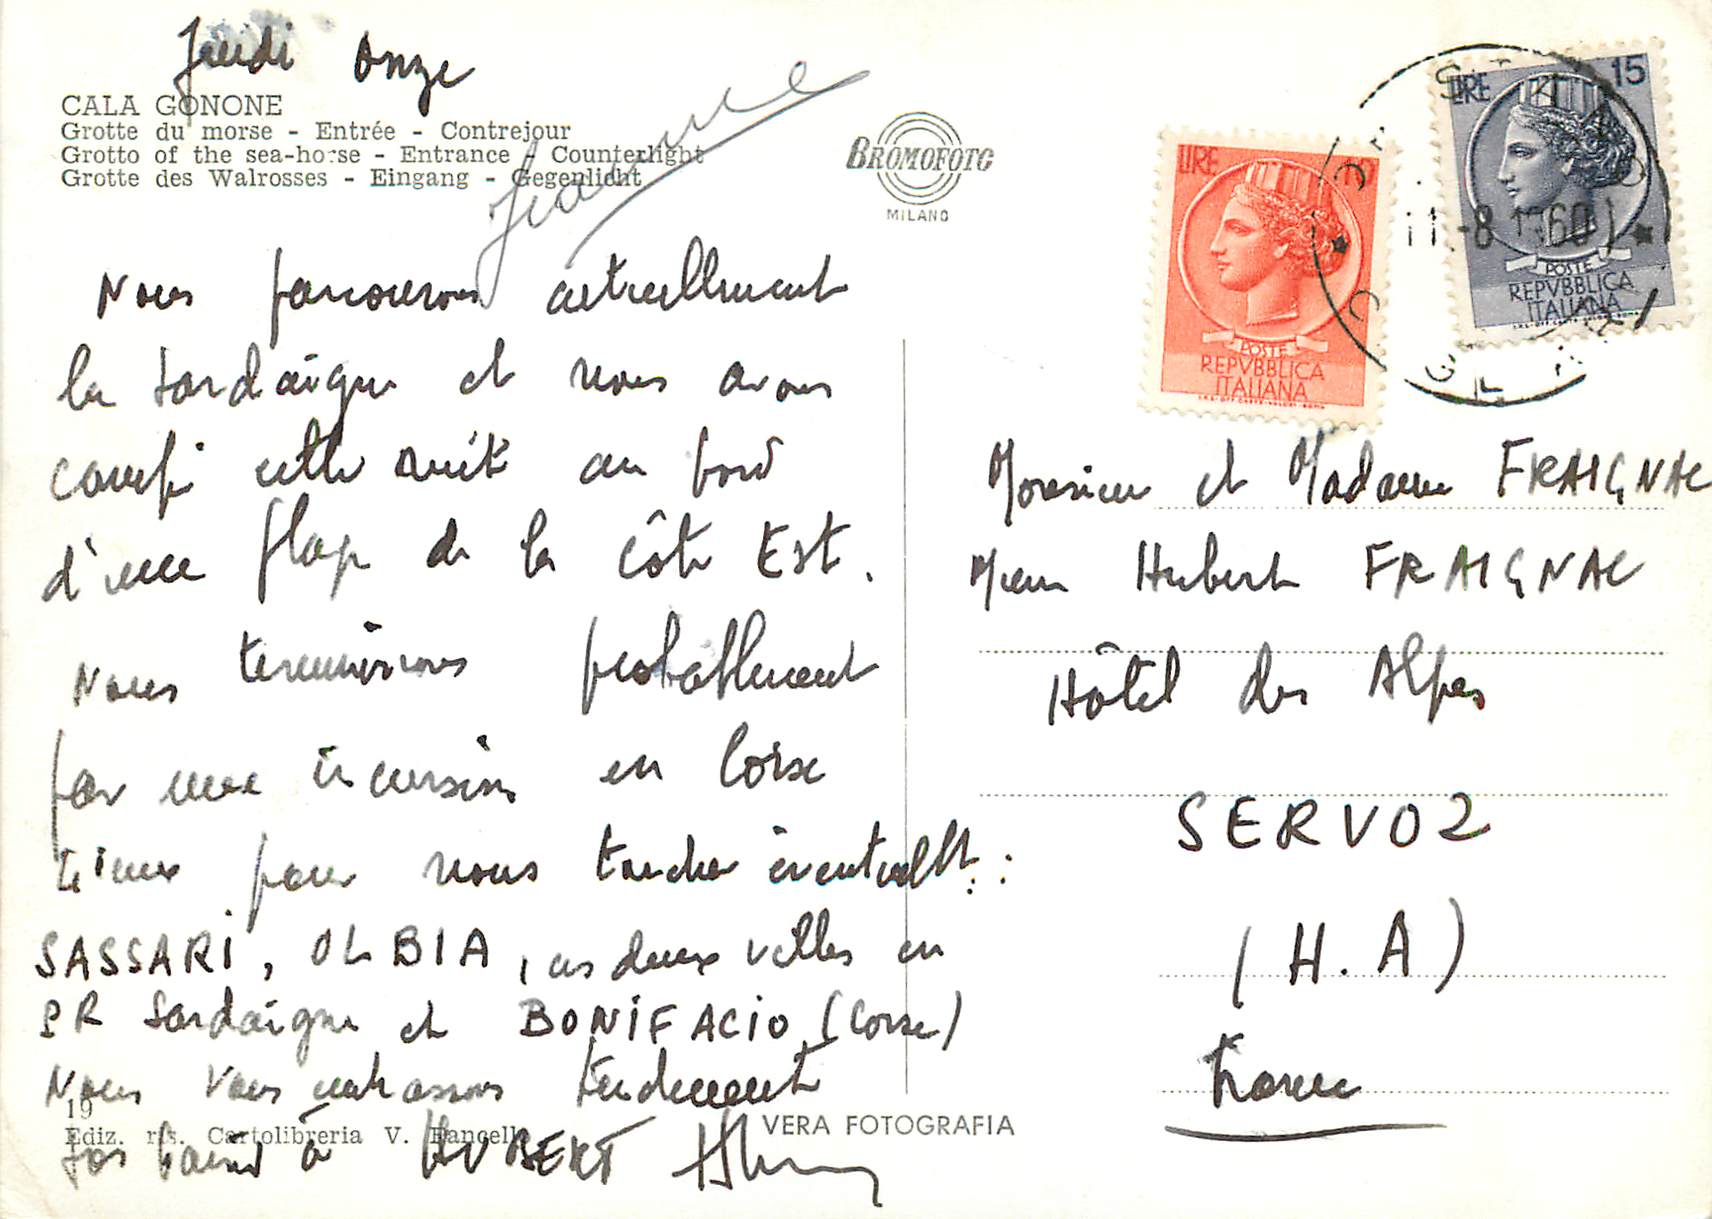 Jeudi Onze
CALA GONONE
Grotte du morse - Entrée - Contrejour
Grotto of the sea-horse - Entrance - Counterlight
Grotte des Walrosses - Eingang - Gegenlicht
Jeanne
BROMOFOTO
MILANO
LIRE 10
POSTE
REPVBBLICA
ITALIANA
I.P.S.-OFF. CARTE-VALORI-ROMA
LIRE 15
POSTE
REPVBBLICA
ITALIANA
I.P.S.-OFF. CARTE-VALORI-ROMA
11-8 1960
Nous parcourons actuellement
la Sardaigne et nous avons
campé cette nuit au bord
d'une plage de la côte Est.
Nous terminerons probablement
par une incursion en Corse
lieux pour nous toucher éventuellt :
SASSARI, OLBIA, ces deux villes en
PR Sardaigne et BONIFACIO (Corse)
Nous vous embrassons tendrement
à HUBERT
Monsieur et Madame FRAIGNAC
Mr Hubert FRAIGNAC
Hôtel des Alpes
SERVOZ
(H.A)
France
19
Ediz. ris. Cartolibreria V. Pancelli
VERA FOTOGRAFIA